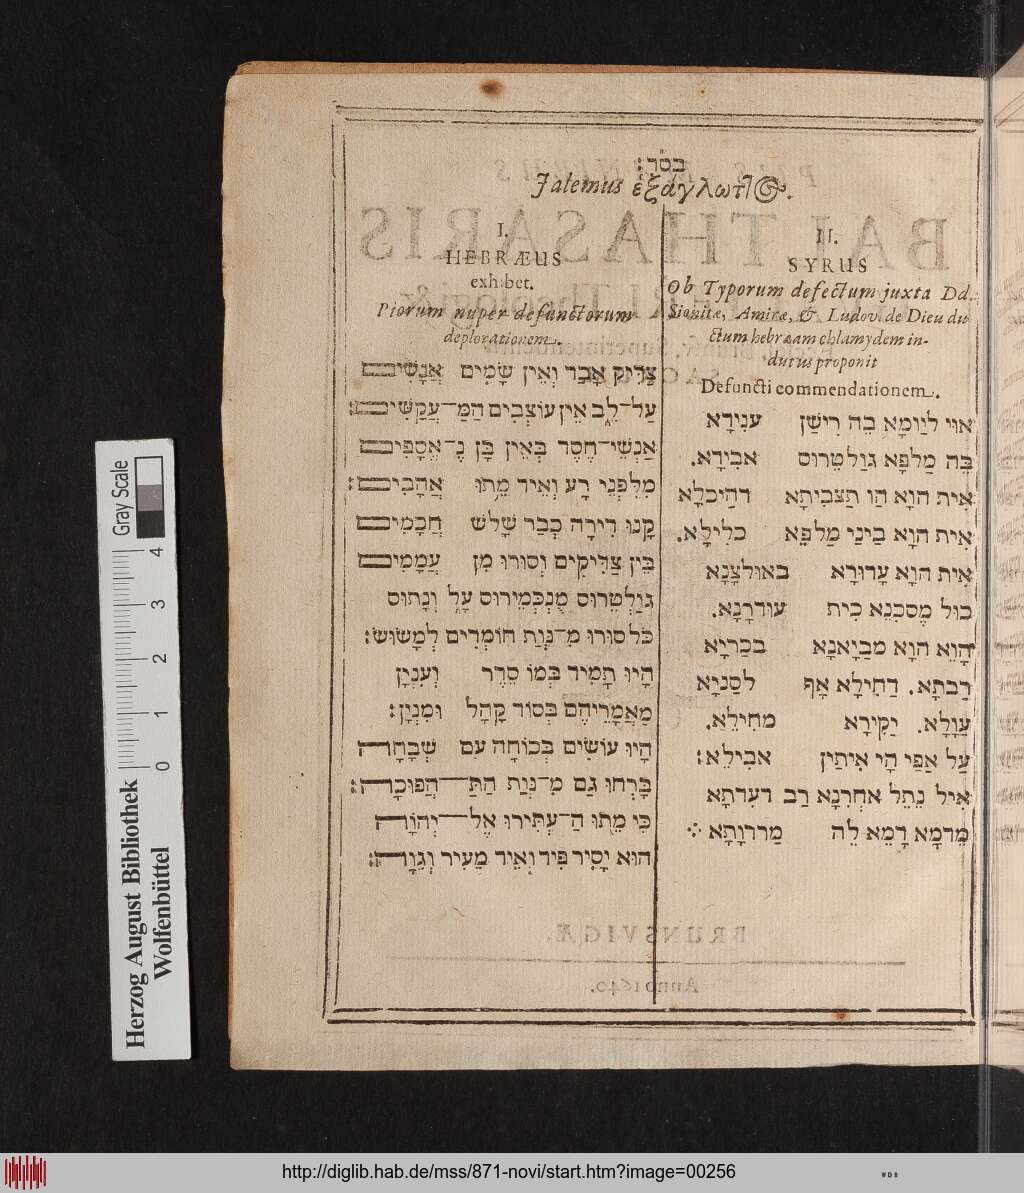 בסד:
Jalemus ἑξάγλωττος.
I.
HEBRÆUS
exhibet.
Piorum nuper defunctorum
deplorationem.
צַדִּיק אָבַד וְאֵין שָׂמִים אֲנָשִׁים
עַל־לֵב אֵין עוֹצְבִים הַמַּ־עֲקַשִּׁים:
אַנְשֵׁי־חֶסֶד בְּאֵין בָּן נֶ־אֱסָפִּים
מִלִּפְנֵי רָע וְאֵיד מֵתוּ אֲהָבִים:
קָנוּ דִירָה כְבַר שָׁלֹשׁ חֲכָמִים
בֵּין צַדִּיקִים וְסוּרוּ מִן עֲמָמִים
גוַלְטֵרוּס מֻנְכְּמֵירוּס עָלָ וְנָתוּס
כֹּל סוּרוּ מִ־נְּוַת חוֹמְדִים לְמָשׂוֹשׂ:
הָיוּ תָמִיד בְּמוֹ סֵדֶר וְעִנְיָן
מַאֲמָרֵיהֶם בְּסוֹד קָהָל וּמִנְיָן:
הָיוּ עוֹשִׂים בְּכוֹחָה עִם שְׁבָחָה
בָּרְחוּ גַם מִ־נְּוַת הַתַּ־הֲפוּכָה:
כִּי מֵתוּ הַ־עְתִּירוּ אֶל־יְהוָה
הוּא יָסִיר פִּיד וְאֵיד מֵעִיר וְגֵוָה:
II.
SYRUS
Ob Typorum defectum juxta Dd.
Sionitæ, Amiræ, & Ludov. de Dieu du
ctum hebræam chlamydem in-
dutus proponit
Defuncti commendationem.
אוּי לְיַוְמָא בֵה רִישַׁן עֲנִידָא
בֵּה מַלפָּא גוַלטֵרוּס אבִידָא.
אִית הוָא הַו תַּצבִּיתָא דהַיכלָא
אִית הוָא בַינַי מַלפֵא כּלִילָא.
אִית הוָא עָדוּרָא בּאוּלצָנָא
כוּל מֶסכִּנֵא כִית עוּדרָנָא.
הָוֵא הוָא מבַיָאנָא בּכַריָא
רַבּתָא. דַחִילָא אָף לסַניָא
עַוָלָא. יַקִירָא מחִילֵא.
עַל אַפַּי הָי אִיתַין אבִילֵא:
אִיל נֵתֶל אחרִנָא רַב דעִדתָא
מֵדמָא דָמֵא לֵה מַררוָתָא
BRUNSVIGÆ,
Anno 1640.
Gray Scale
0 1 2 3 4
Herzog August Bibliothek
Wolfenbüttel
http://diglib.hab.de/mss/871-novi/start.htm?image=00256